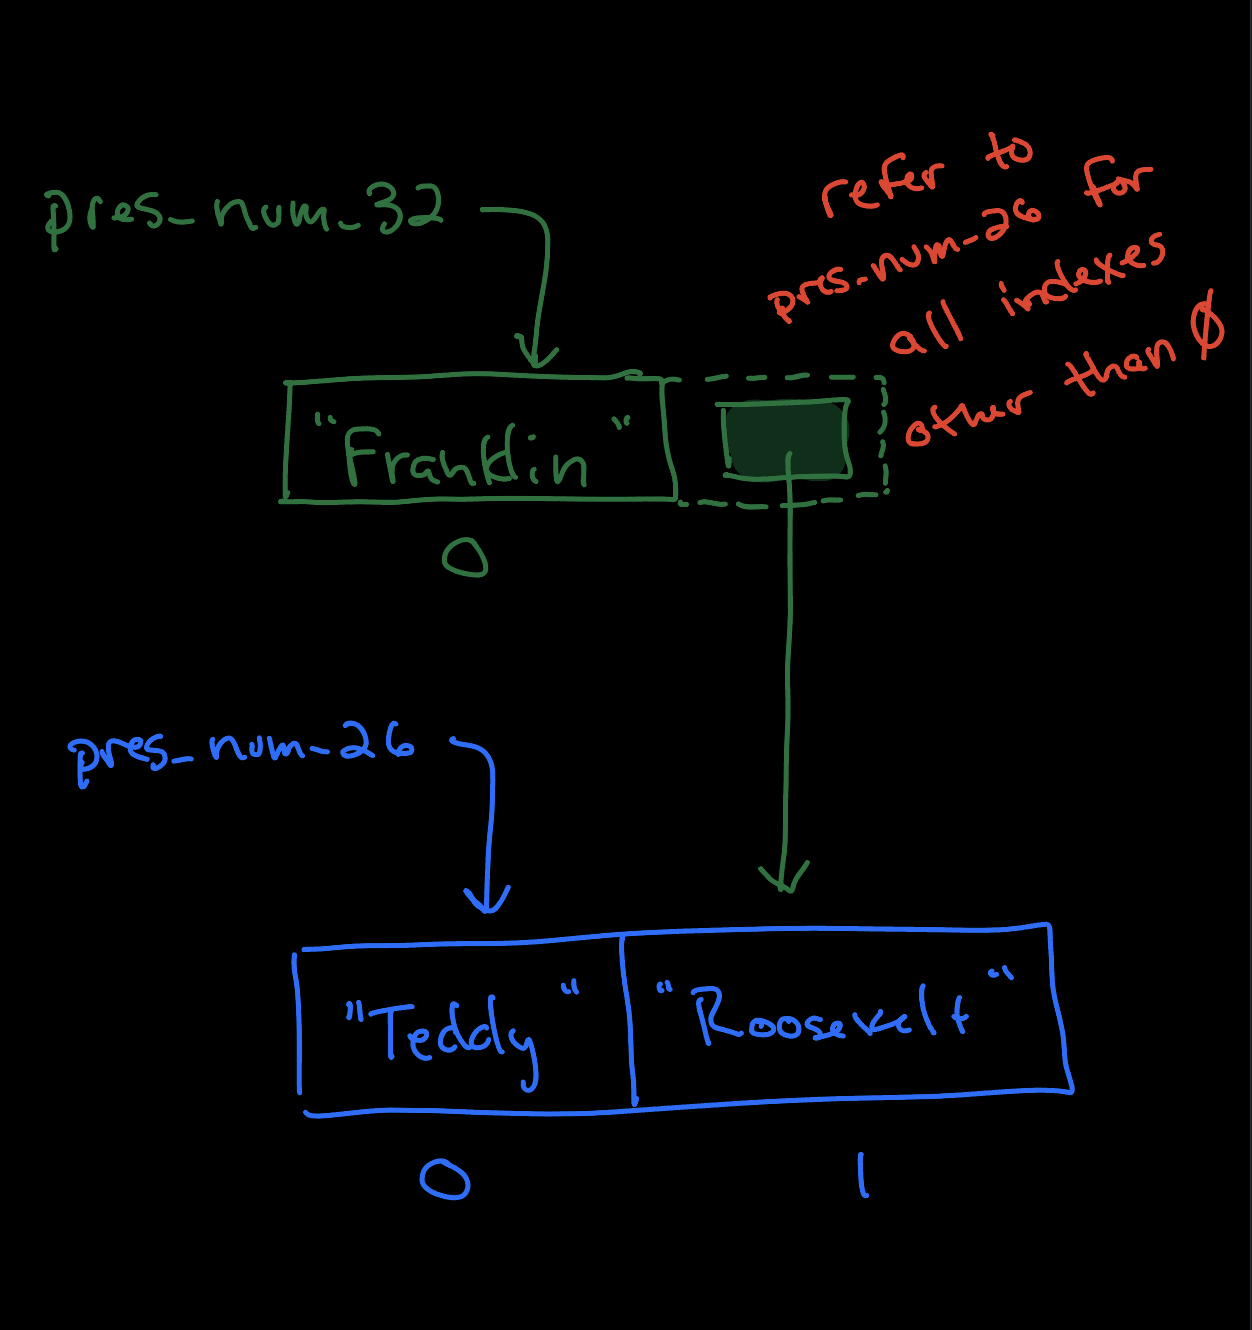 pres_num_32
refer to
pres_num_26 for
all indexes
other than 0
"Franklin"
0
pres_num_26
"Teddy" "Roosevelt"
0 1